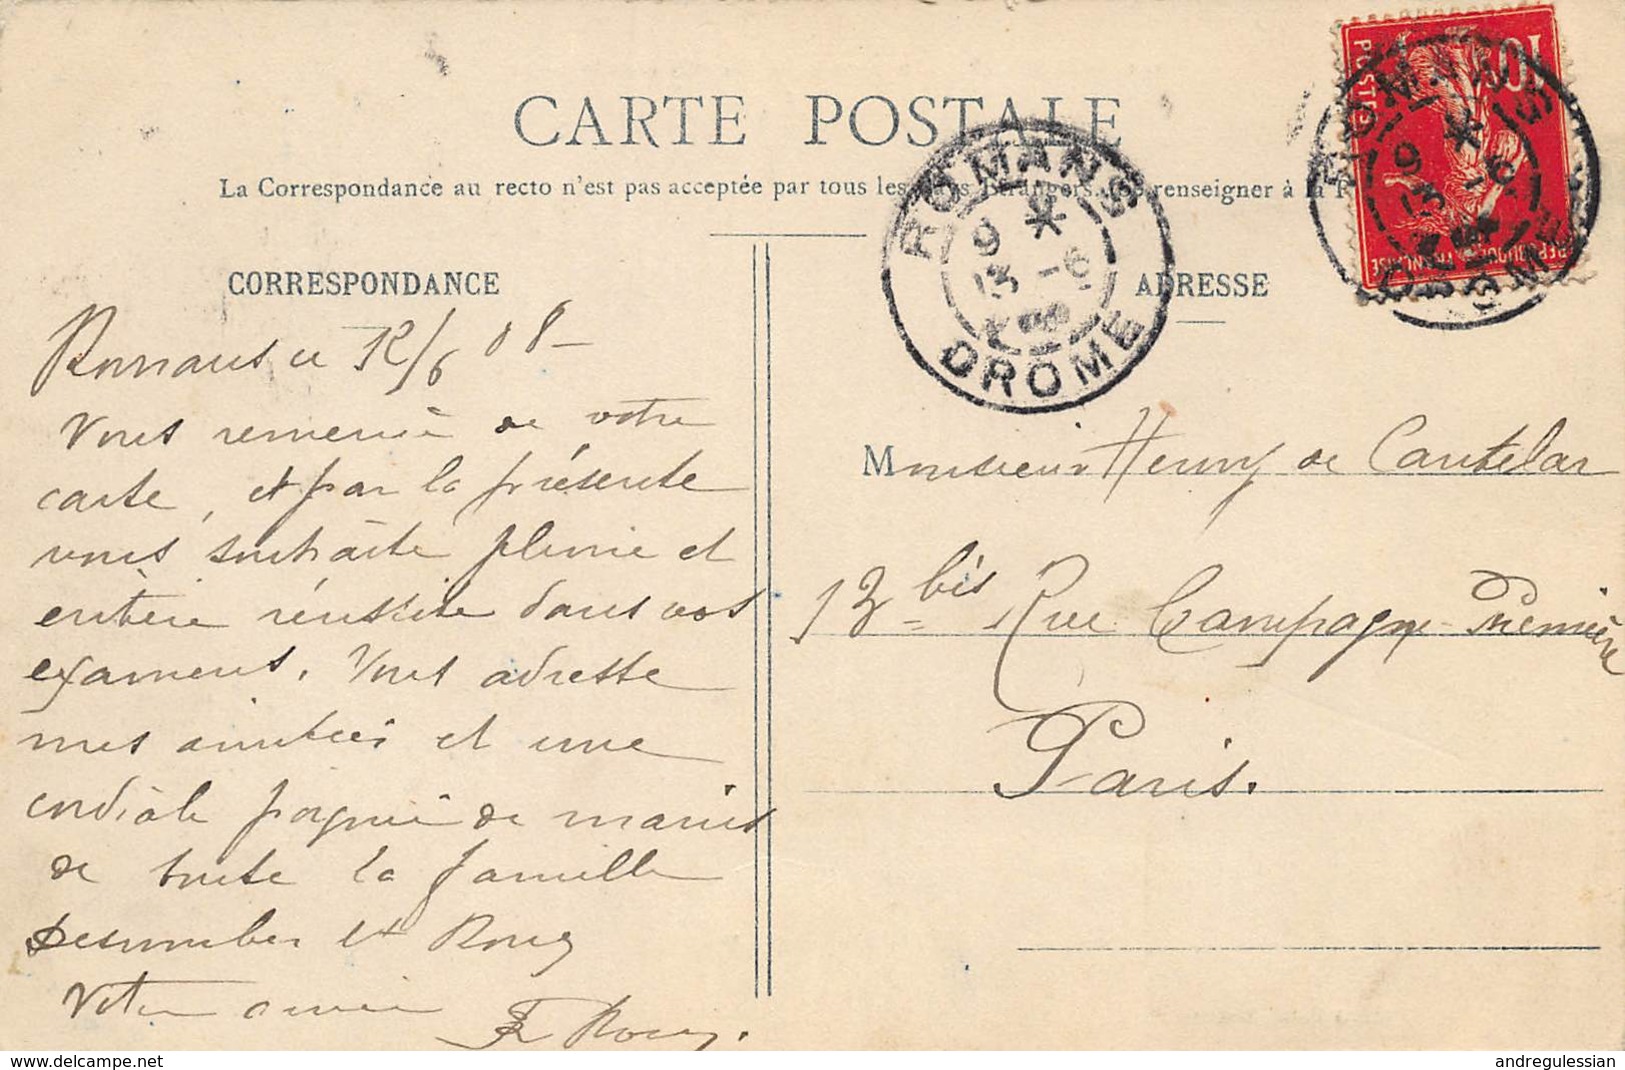 CARTE POSTALE
La Correspondance au recto n'est pas acceptée par tous les pays Etrangers. Se renseigner à la
CORRESPONDANCE
ADRESSE
10
POSTES
REPUBLIQUE FRANÇAISE
ROMANS
9 *
13 - 6
DROME
ROMANS
9 *
13 - 6
DROME
Romans ce 12/6 08-
Vous remercie de votre
carte, et par la présente
vous souhaite pleine et
entière réussite dans vos
examens. Vous adresse
mes amitiés et une
cordiale poignée de mains
de toute la famille
et Roux
Votre ami
Roux.
Monsieur Henry de Cantelar
13 bis Rue Campagne Première
Paris.
www.delcampe.net
andregulessian